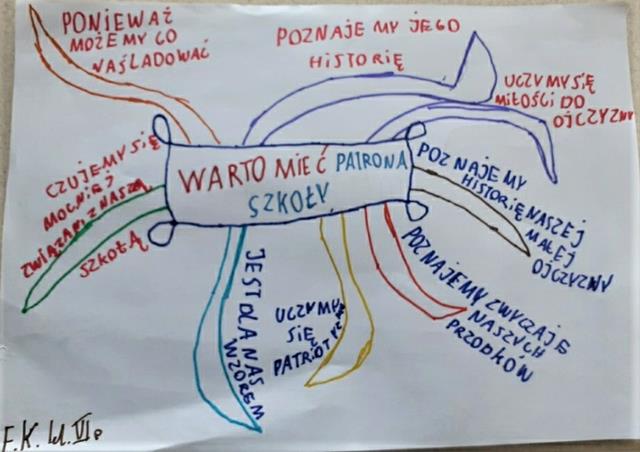 PONIEWAŻ
MOŻEMY GO
NAŚLADOWAĆ
POZNAJEMY JEGO
HISTORIĘ
UCZYMY SIĘ
MIŁOŚCI DO
OJCZYZNY
CZUJEMY SIĘ
MOCNIEJ
ZWIĄZANI Z NASZĄ
SZKOŁĄ
WARTO MIEĆ PATRONA
SZKOŁY
POZNAJEMY
HISTORIĘ NASZEJ
MAŁEJ
OJCZYZNY
JEST DLA NAS
WZOREM
UCZYMY
SIĘ
POZNAJEMY ZWYCZAJE
NASZYCH
PRZODKÓW
F.K. kl. VI